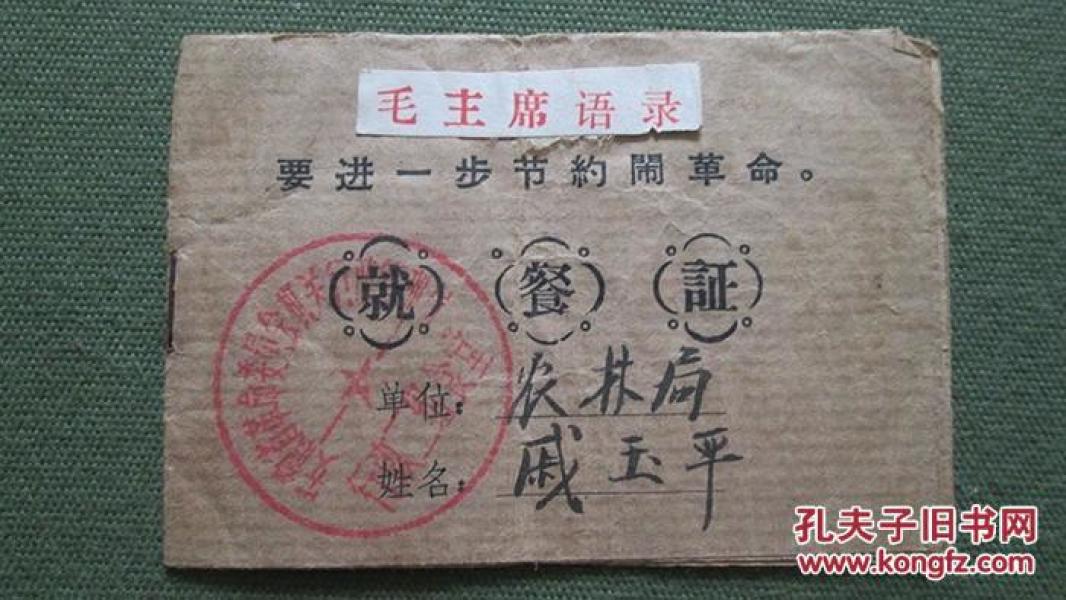 毛主席语录
要进一步节約鬧革命。
就餐証
单位：农林局
姓名：戚玉平
孔夫子旧书网
www.kongfz.com